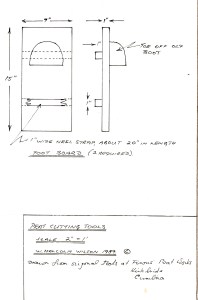 4"
1"
TOE OFF OLD
BOOT
15"
1"
1" WIDE HEEL STRAP ABOUT 20" IN LENGTH
FOOT BOARD (2 REQUIRED)
PEAT CUTTING TOOLS
SCALE 2" = 1'
W. MALCOLM WILSON 1989 ©
drawn from original tools at Peat Works
Kirkbride
Cumbria